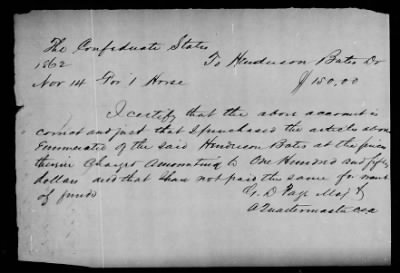 The Confederate States
1862 To Henderson Bates Dr
Nov 14 For 1 Horse $150.00
I certify that the above account is
correct and just that I purchased the articles above
Enumerated of the said Henderson Bates at the prices
therein Charged amounting to One Hundred and fifty
dollars and that I have not paid the same for want
of funds G. D. Page Maj &
A Quartermaster CSA